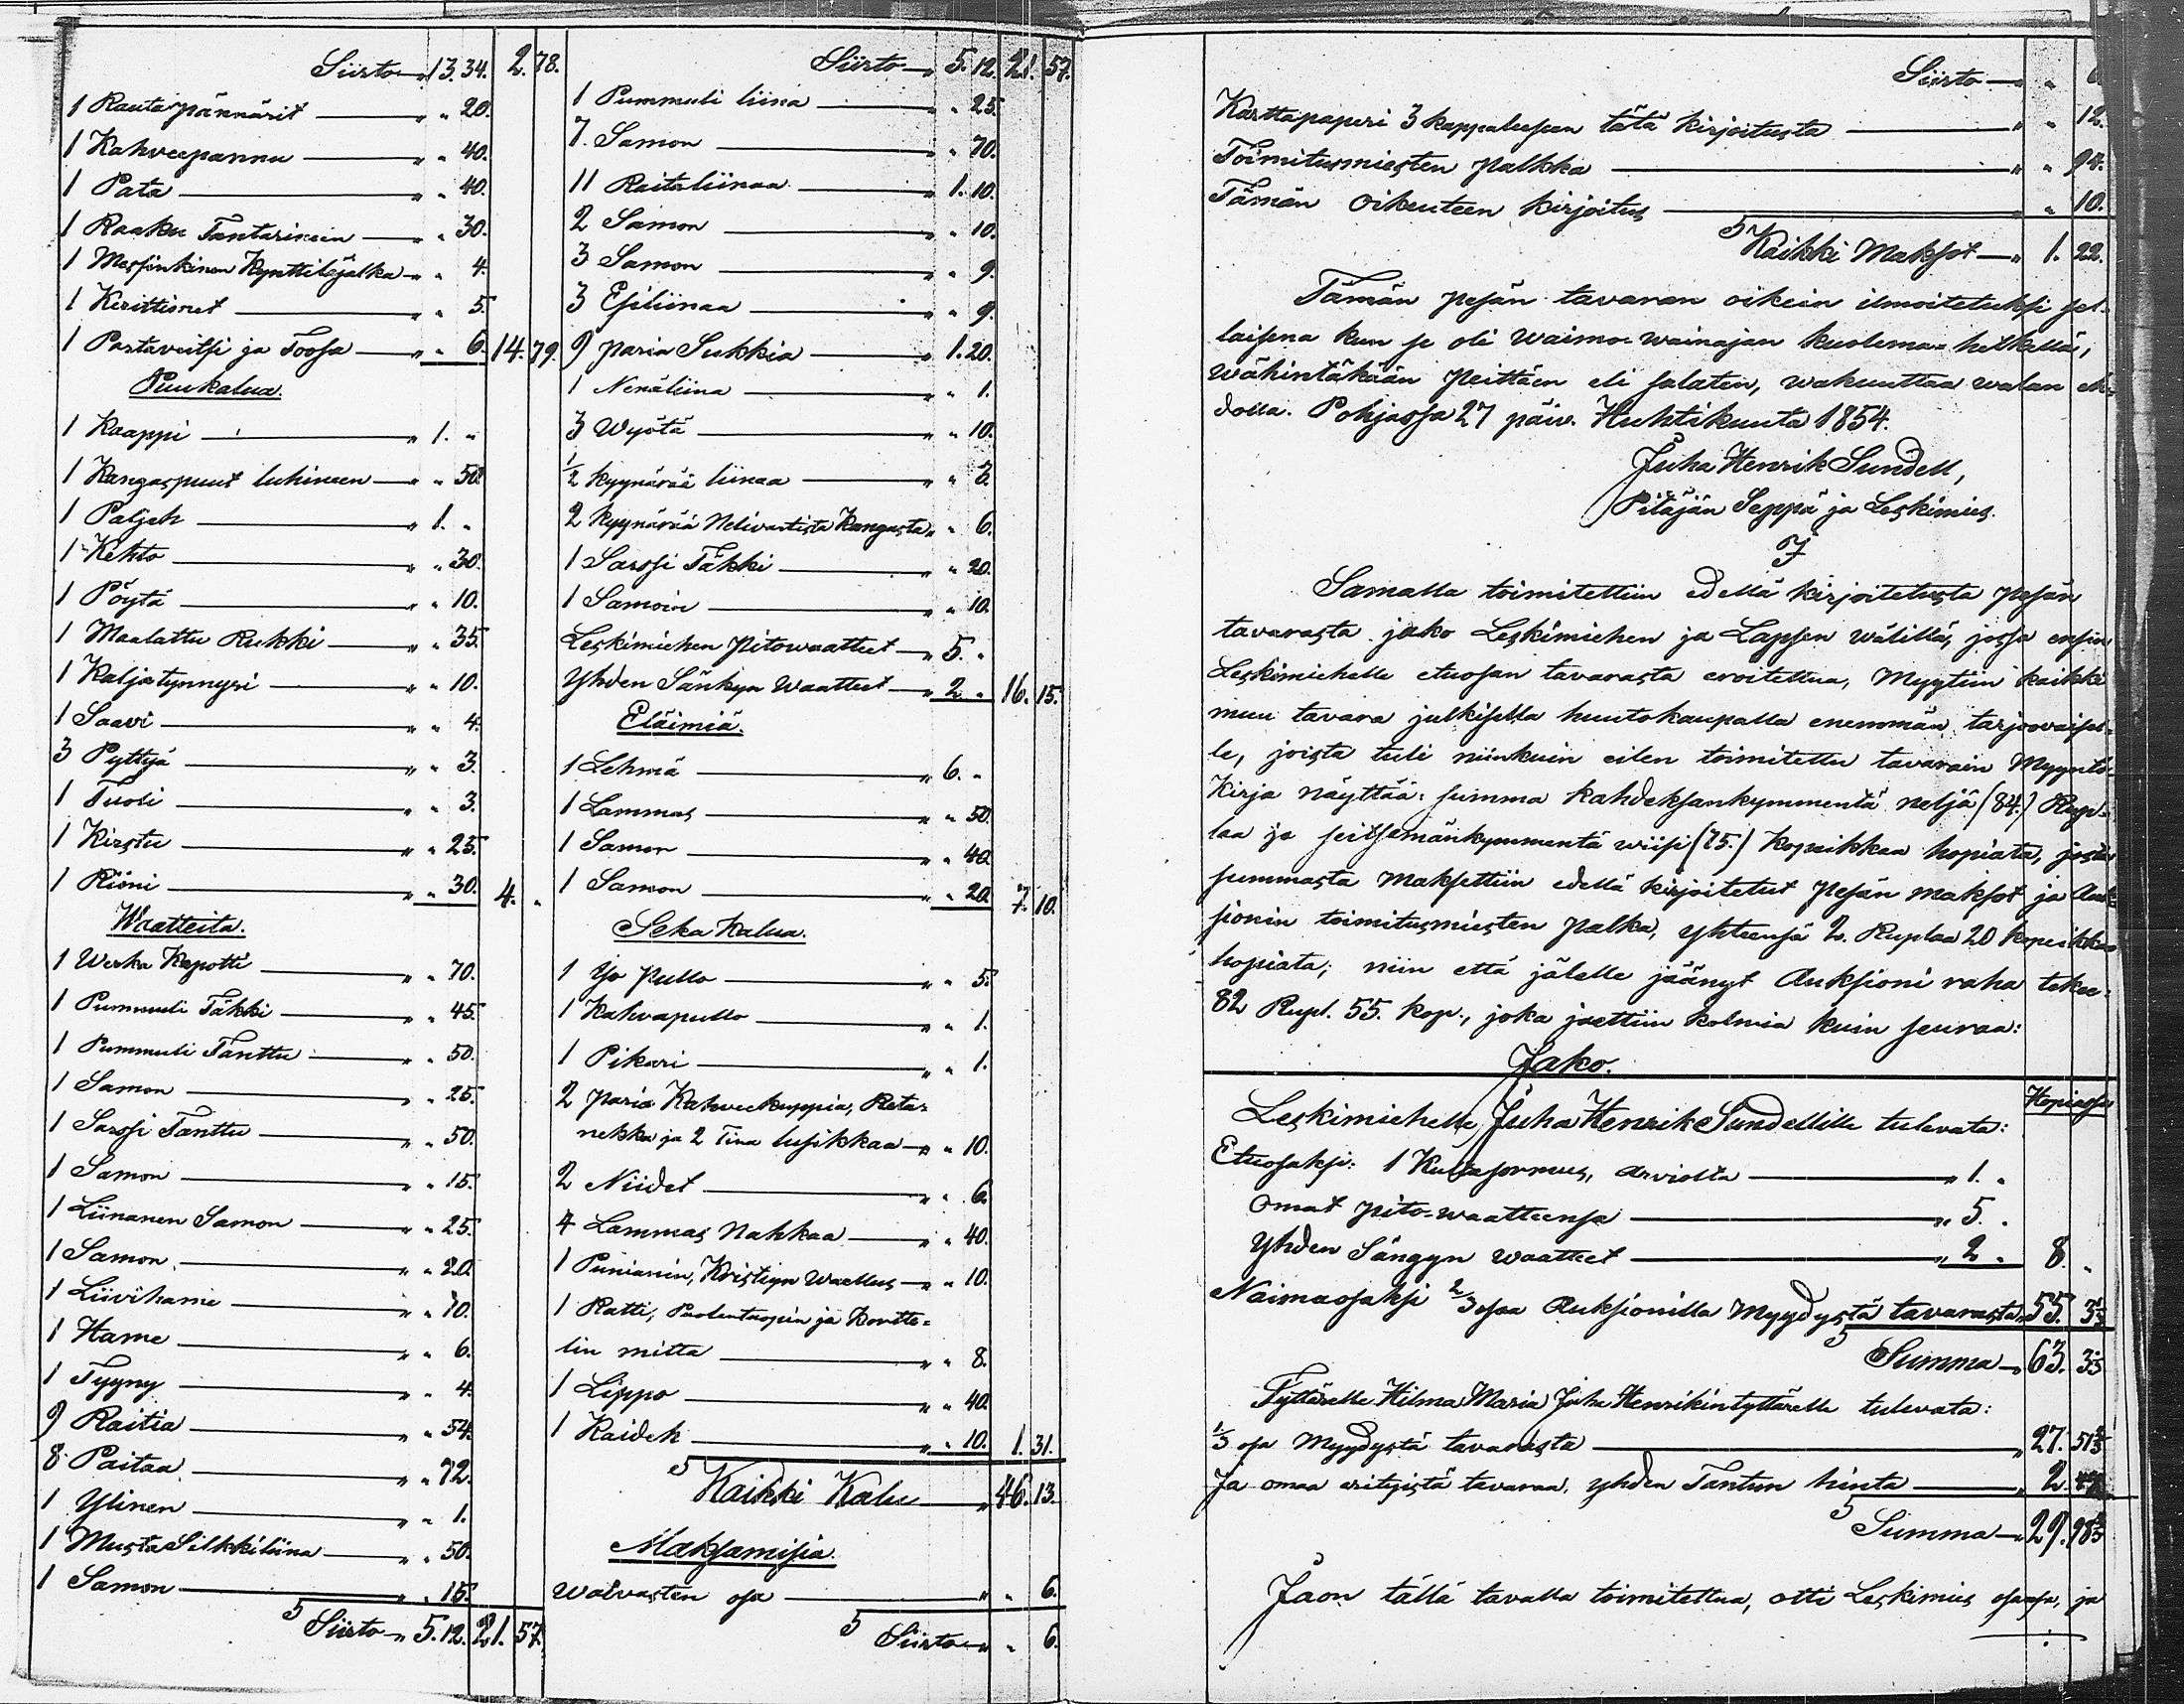 Siirto — „ 13. 34. 2. 78.
1 Rautapännärit — „ „ 20.
1 Kahveepannu — „ „ 40.
1 Pata — „ „ 40.
1 Raaku Tantarinein — „ „ 30.
1 Messinkinen Kynttiläjalka — „ „ 4.
1 Kerittimet — „ „ 5.
1 Partaveitsi ja Toosa — „ „ 6. 14. 79.
Puukalua.
1 Kaappi — „ 1. „
1 Kangaspuut luhineen — „ „ 50.
1 Paljeh — „ 1. „
1 Kehto — „ „ 30.
1 Pöytä — „ „ 10.
1 Maalattu Rukki — „ „ 35.
1 Kaljatynnyri — „ „ 10.
1 Saavi — „ „ 4.
3 Pyttyä — „ „ 3.
1 Tuoli — „ „ 3.
1 Kirstu — „ „ 25.
1 Piöni — „ „ 30. 4. „
Waatteita.
1 Werka Kapotti — „ „ 70.
1 Pummuli Täkki — „ „ 45.
1 Pummuli Tanttu — „ „ 50.
1 Samon — „ „ 25.
1 Sarssi Tanttu — „ „ 50.
1 Samon — „ „ 15.
1 Liinanen Samon — „ „ 25.
1 Samon — „ „ 20.
1 Liivihame — „ „ 10.
1 Hame — „ „ 6.
1 Tyyny — „ „ 4.
9 Raitia — „ „ 54.
8 Paitaa — „ „ 72.
1 Ylinen — „ „ 1.
1 Musta Silkkiliina — „ „ 50.
1 Samon — „ „ 15.
Siirto — „ 5. 12. 21. 57.
Siirto — „ 5. 12. 21. 57.
1 Pummuli liina — „ „ 25.
7. Samon — „ „ 70.
11 Raitaliinaa — „ 1. 10.
2 Samon — „ „ 10.
3 Samon — „ „ 9.
3 Esiliinaa — „ „ 9.
9 paria Sukkia — „ 1. 20.
1 Nenäliina — „ „ 1.
3 Wyötä — „ „ 10.
1/2 kyynärää liinaa — „ „
2 kyynärää Nelivartista Kangasta „ „ 6.
1 Sarssi Täkki — „ „ 20.
1 Samoin — „ „ 10.
Leskimiehen pitowaatteet — „ 5. „
Yhden Sänkyn Waatteet — „ 2. „ 16. 15.
Eläimiä.
1 Lehmä — „ 6. „
1 Lammas — „ „ 50.
1 Samon — „ „ 40.
1 Samon — „ „ 20. 7. 10.
Seka Kalua.
1 Yö pullo — „ „ 5.
1 Kahvapullo — „ „ 1.
1 Pikari — „ „ 1.
2 paria Kahveekuppia, Reta-
nekka ja 2 Tina lusikkaa — „ „ 10.
2 Niidet — „ „ 6.
4 Lammas Nahkaa — „ „ 40.
1 Punianin, Kristiyn Waellus — „ „ 10.
1 Ratti, Puolentuopin ja Kortte-
lin mitta — „ „ 8.
1 Lippo — „ „ 40.
1 Kaideh — „ „ 10. 1. 31.
Kaikki Kalu — „ 46. 13.
Maksamisia.
waivasten osa — „ „ 6.
Siirto — „ „ 6.
Siirto — „ „
Karttapaperi 3 kappaleesen tätä kirjoitusta — „ „ 12.
Toimitusmiesten palkka — „ „ 94.
Tämän oikeuteen kirjoitus — „ „ 10.
Kaikki Maksot — „ 1. 22.
Tämän pesän tavaran oikein ilmoitetuksi sel-
laisena kun se oli waimo-wainajan kuolema-hetkellä,
wähintäkään peittäen eli salaten, wakuuttaa walan eh-
dolla. Pohjassa 27 päiv. Huhtikuuta 1854.
Juha Henrik Sundell,
Pitäjän Seppä ja Leskimies.
Samalla toimitettiin edellä kirjoitetusta pesän
tavarasta jako Leskimiehen ja Lapsen wälillä, jossa ensin
Leskimiehelle etuosan tavarasta eroitettua, Myytiin kaikki
muu tavara julkisella huutokaupalla enemmän tarjoovaisel-
le, joista tuli niinkuin eilen toimitettu tavarain Myynti-
Kirja näyttää: summa kahdeksankymmentä neljä (84.) Rup-
laa ja seitsemänkymmentä wiisi (75.) kopeikkaa hopiata, josta
summasta maksettiin edellä kirjoitetut pesän maksot ja Auk-
sionin toimitusmiesten palka, yhteensä 2. Ruplaa 20 kopeikkaa
hopiata; niin että jälelle jäänyt Auksioni raha tekee:
82 Rupl. 55. kop., joka jaettiin kolmia kuin seuraa:
Jako.
Hopiassa
Leskimiehelle Juha Henrik Sundellille tulevata:
Etuosaksi: 1 Kultasormus, arviolta — „ 1. „
Omat pito-waatteensa — „ 5. „
Yhden Sängyn waatteet — „ 2 „ 8. „
Naimaosaksi 2/3 osaa Auksionilla Myydystä tavarasta „ 55. 3 1/3
Summa — „ 63. 3 1/3
Tyttärelle Hilma Maria Juha Henrikintyttärelle tulevata:
1/3 osa Myydystä tavarasta — „ 27. 51 2/3
Ja omaa erityistä tavaraa, yhden Tantun hinta — „ 2. 47
Summa — „ 29. 98 2/3
Jaon tällä tavalla toimitettua, otti Leskimies osansa, ja